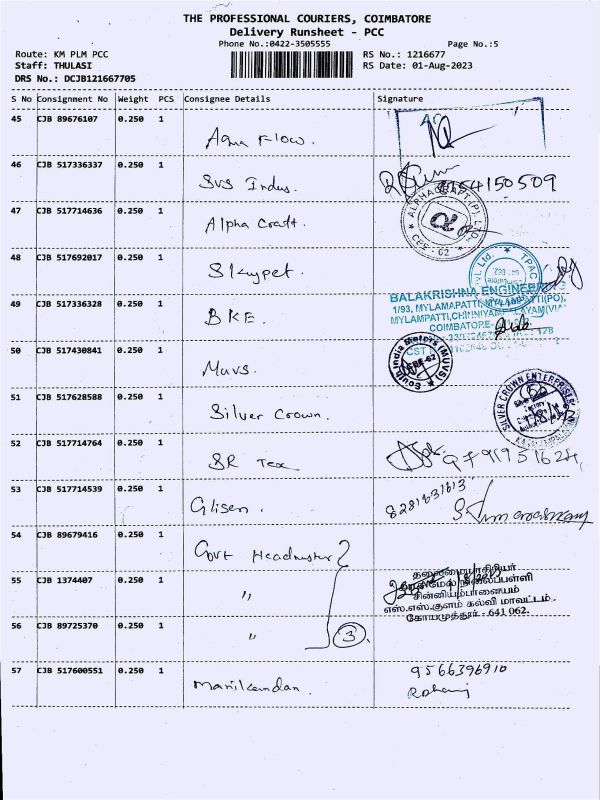 THE PROFESSIONAL COURIERS, COIMBATORE
Delivery Runsheet - PCC
Phone No.:0422-3505555 Page No.:5
Route: KM PLM PCC RS No.: 1216677
Staff: THULASI RS Date: 01-Aug-2023
DRS No.: DCJB121667705
S No Consignment No Weight PCS Consignee Details Signature
45 CJB 89676107 0.250 1 Aqua Flow.
46 CJB 517336337 0.250 1 SVS Indus. 9154150509
47 CJB 517714636 0.250 1 Alpha Craft. ALPHACRAFT (P) LTD. CBE-62
48 CJB 517692017 0.250 1 Skypet. TPAC
49 CJB 517336328 0.250 1 BKE. BALAKRISHNA ENGINEER
1/93, MYLAMAPATTI, MYLAMPATTI(PO),
MYLAMPATTI, CHINNIYAMPALAYAM(VIA)
COIMBATORE-
50 CJB 517430841 0.250 1 Muvs. South India Motors (MUVS) CBE-62
51 CJB 517628588 0.250 1 Silver Crown. SILVER CROWN ENTERPRISES
52 CJB 517714764 0.250 1 SR Tex
53 CJB 517714539 0.250 1 Glisen. 8281631613
54 CJB 89679416 0.250 1 Govt Headmaster
55 CJB 1374407 0.250 1 "
தலைமையாசிரியர்
சின்னியம்பாளையம்
எஸ்.எஸ்.குளம் கல்வி மாவட்டம்.
கோயமுத்தூர் - 641 062.
56 CJB 89725370 0.250 1 " 3
57 CJB 517600551 0.250 1 Manikandan. 9566396910